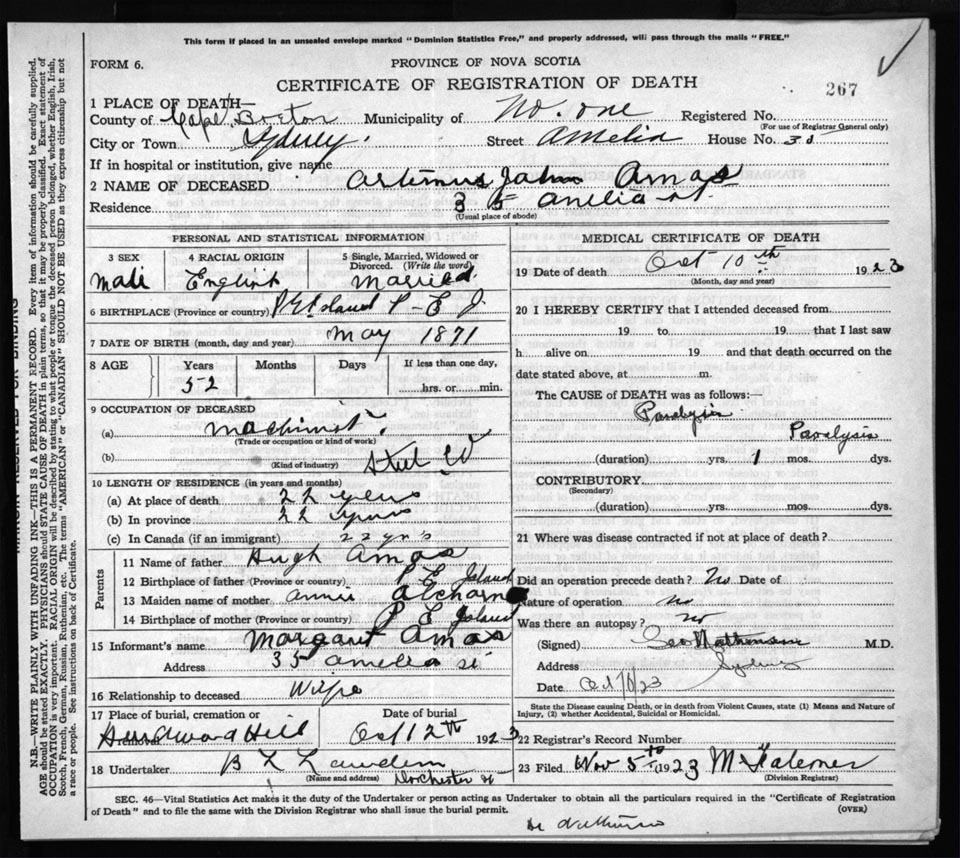 This form if placed in an unsealed envelope marked "Dominion Statistics Free," and properly addressed, will pass through the mails "FREE."
FORM 6.
PROVINCE OF NOVA SCOTIA
CERTIFICATE OF REGISTRATION OF DEATH
267
1 PLACE OF DEATH—
County of Cape Breton Municipality of No. one Registered No.
(For use of Registrar General only)
City or Town Sydney Street Amelia House No. 35
If in hospital or institution, give name
2 NAME OF DECEASED Artimus John Amos
Residence 35 Amelia st.
(Usual place of abode)
PERSONAL AND STATISTICAL INFORMATION
3 SEX 4 RACIAL ORIGIN 5 Single, Married, Widowed or Divorced. (Write the word)
Male English Married
6 BIRTHPLACE (Province or country) P E Island P-E I
7 DATE OF BIRTH (month, day and year) May 1871
8 AGE Years Months Days If less than one day,
52 hrs. or min.
9 OCCUPATION OF DECEASED
(a) Machinist
(Trade or occupation or kind of work)
(b) Steel W
(Kind of industry)
10 LENGTH OF RESIDENCE (in years and months)
(a) At place of death 22 years
(b) In province 22 years
(c) In Canada (if an immigrant) 22 yrs
Parents
11 Name of father Hugh Amos
12 Birthplace of father (Province or country) P E Island
13 Maiden name of mother Annie
14 Birthplace of mother (Province or country) P E Island
15 Informant's name Margaret Amos
Address 35 Amelia st
16 Relationship to deceased Wife
17 Place of burial, cremation or removal Date of burial
Hill Oct 12th 1923
18 Undertaker B L
(Name and address) Dorchester st
MEDICAL CERTIFICATE OF DEATH
19 Date of death Oct 10th 1923
(Month, day and year)
20 I HEREBY CERTIFY that I attended deceased from
19 to 19 that I last saw
h alive on 19 and that death occurred on the
date stated above, at m.
The CAUSE of DEATH was as follows:
Paralysis
Paralysis
(duration) yrs. 1 mos. dys.
CONTRIBUTORY
(Secondary)
(duration) yrs. mos. dys.
21 Where was disease contracted if not at place of death?
Did an operation precede death? No Date of
Nature of operation no
Was there an autopsy? no
(Signed) M.D.
Address Sydney
Date Oct /23
State the Disease causing Death, or in death from Violent Causes, state (1) Means and Nature of
Injury, (2) whether Accidental, Suicidal or Homicidal.
22 Registrar's Record Number
23 Filed Nov 5th 1923
(Division Registrar)
SEC. 46—Vital Statistics Act makes it the duty of the Undertaker or person acting as Undertaker to obtain all the particulars required in the "Certificate of Registration
of Death" and to file the same with the Division Registrar who shall issue the burial permit. (OVER)
MARGIN RESERVED FOR BINDING
N.B.—WRITE PLAINLY WITH UNFADING INK—THIS IS A PERMANENT RECORD. Every item of information should be carefully supplied.
AGE should be stated EXACTLY. PHYSICIANS should STATE CAUSE OF DEATH in plain terms, so that it may be properly classified. Exact statement of
OCCUPATION is very important. RACIAL ORIGIN will be described by stating to what people or tongue the deceased person belonged, whether English, Irish,
Scotch, French, German, Russian, Ruthenian, etc. The terms "AMERICAN" or "CANADIAN" SHOULD NOT BE USED as they express citizenship but not
a race or people. See instructions on back of Certificate.